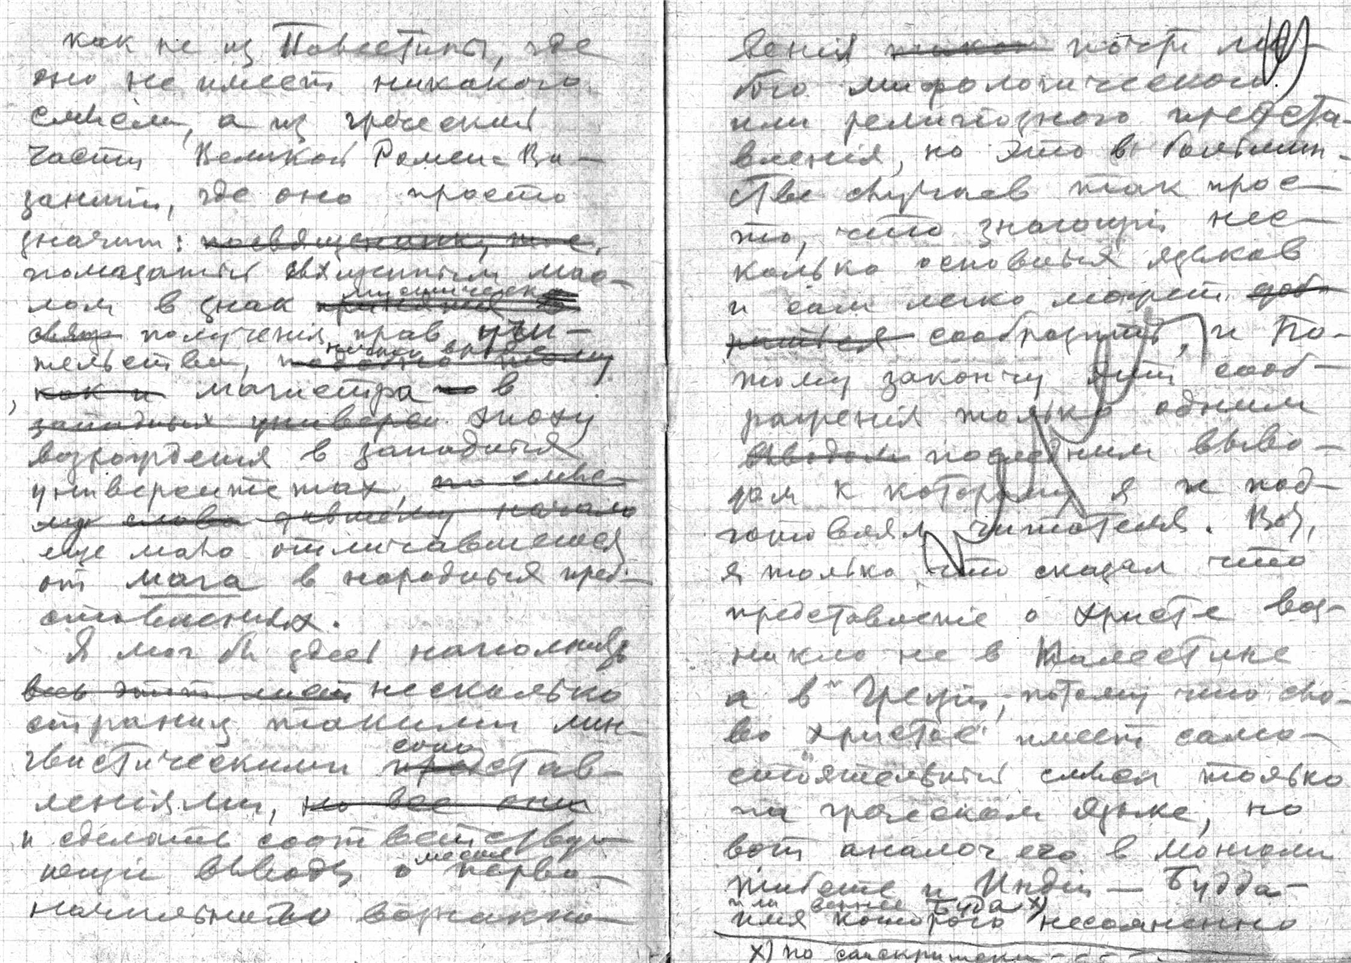 как не из Палестины, где
оно не имеет никакого
смысла, а из греческой
части Великой Ромеи-Ви-
зантии, где оно просто
значит: посвящ
помазаный священным мас-
лом в знак мистическ
получения прав учи-
тельства,
как и магистра в
западных универси эпоху
возрождения в западных
университетах, по смыс-
лу слова давшему начало
еще мало отличавшегося
от мага в народных пред-
ставлениях.
Я мог бы здесь наполнить
весь этот лист несколько
страниц такими лин-
гвистическими сопостав-
лениями, но все они
и сделать соответству-
ющие выводы о месте перво-
начального возникно-
вения почти лю-
бого мифологического
или религиозного предста-
вления, но это в большин-
стве случаев так прос-
то, что знающий нес-
колько основных языков
и сам легко может
сообразить, и по-
тому закончу эти сооб-
ражения только одним
выводом последним выво-
дом к которому я и под-
готовлял читателя. Вот,
я только что сказал что
представление о Христе воз-
никло не в Палестине
а в Греции, потому что сло-
во "христос" имеет само-
стоятельный смысл только
на греческом языке, но
вот аналог его в Монголии
Тибете и Индии — Будда
или вернее Буда x)
имя которого несомненно
x) по санскритски - - - -